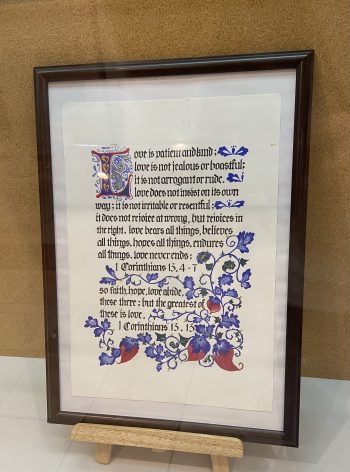 Love is patient and kind;
love is not jealous or boastful;
it is not arrogant or rude.
love does not insist on its own
way; it is not irritable or resentful;
it does not rejoice at wrong, but rejoices in
the right. love bears all things, believes
all things, hopes all things, endures
all things. love never ends;
1 Corinthians 13, 4-7
so faith, hope, love abide,
these three; but the greatest of
these is love.
1 Corinthians 13. 13